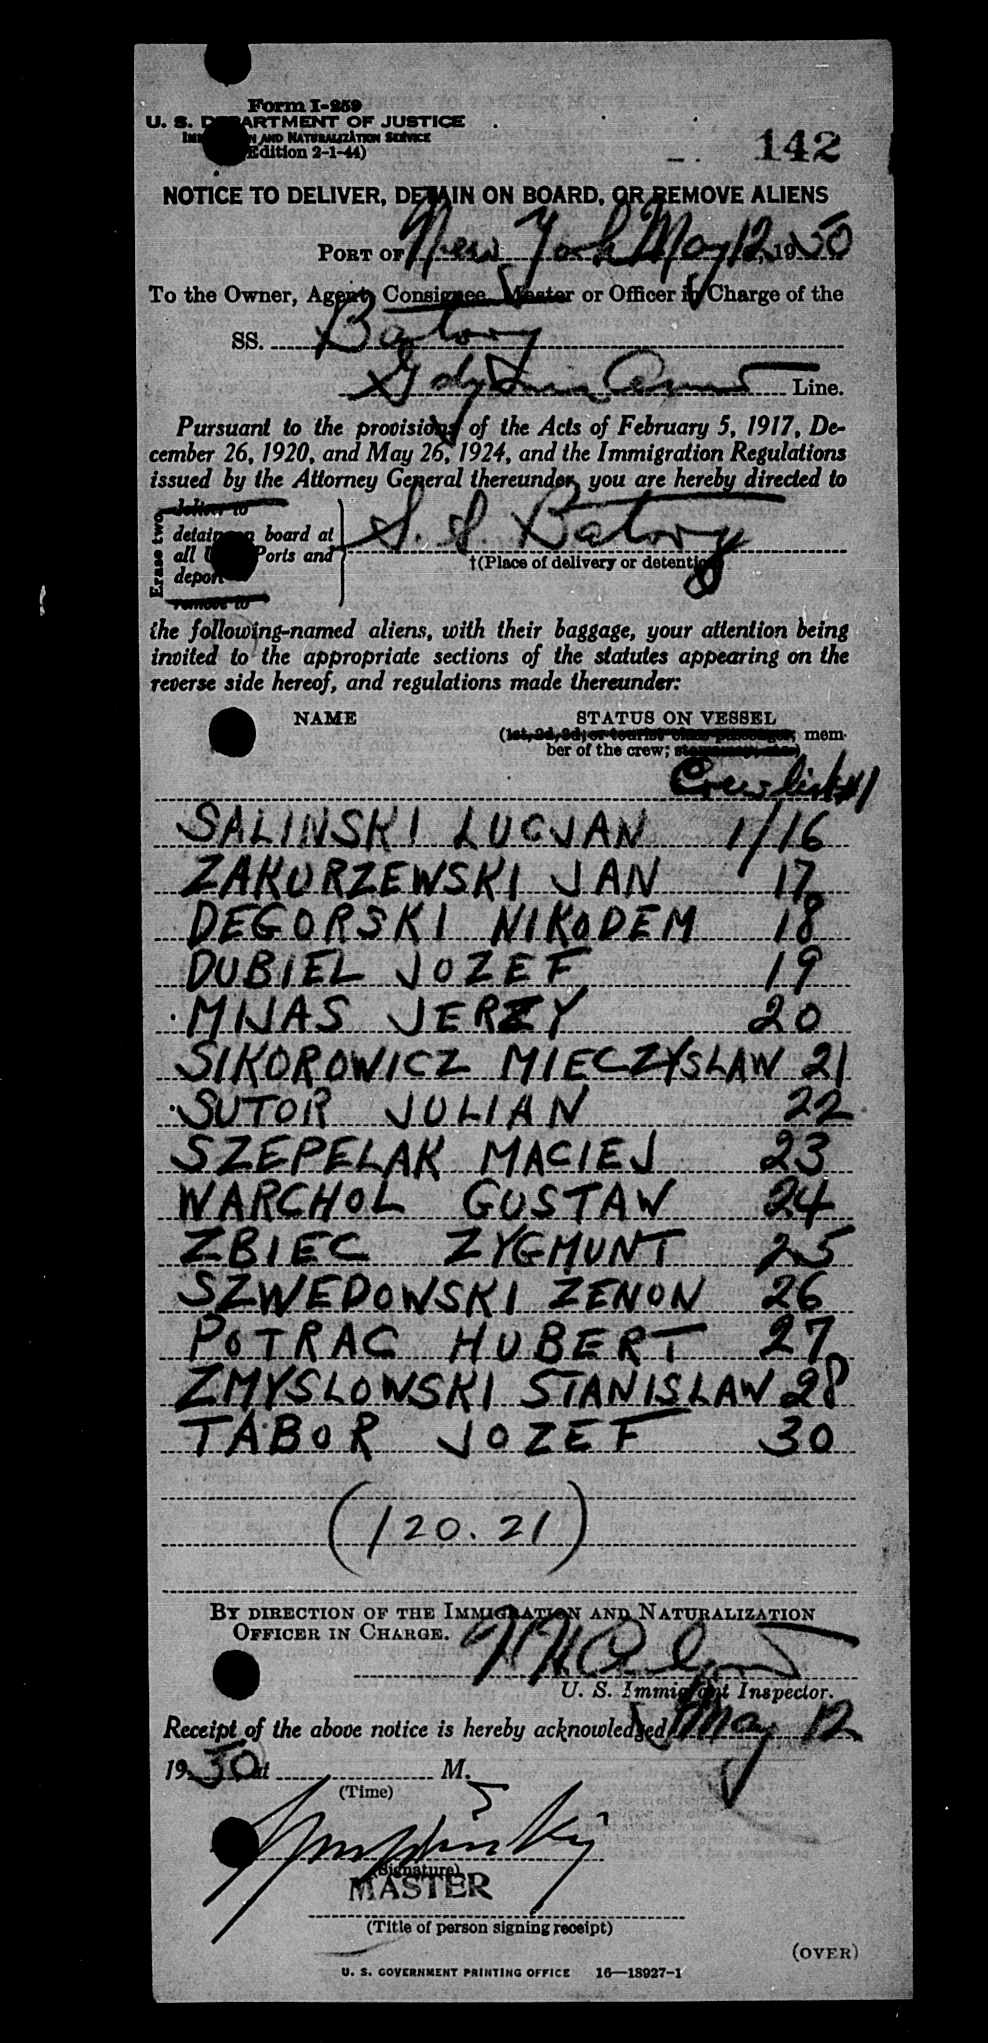 Form I-259
U. S. DEPARTMENT OF JUSTICE
IMMIGRATION AND NATURALIZATION SERVICE
(Edition 2-1-44)
142
NOTICE TO DELIVER, DETAIN ON BOARD, OR REMOVE ALIENS
PORT OF New York May 12, 1950
To the Owner, Agent, Consignee, Master or Officer in Charge of the
SS. Batory
Gdynia Line.
Pursuant to the provisions of the Acts of February 5, 1917, De-
cember 26, 1920, and May 26, 1924, and the Immigration Regulations
issued by the Attorney General thereunder, you are hereby directed to
Erase two
deliver to
detain on board at
all U. S. Ports and
deport
remove to
S. S. Batory
†(Place of delivery or detention)
the following-named aliens, with their baggage, your attention being
invited to the appropriate sections of the statutes appearing on the
reverse side hereof, and regulations made thereunder:
NAME STATUS ON VESSEL
(1st, 2d, 3d, or tourist class passenger, mem-
ber of the crew;
Crew list #1
SALINSKI LUCJAN 1/16
ZAKURZEWSKI JAN 17
DEGORSKI NIKODEM 18
DUBIEL JOZEF 19
MIJAS JERZY 20
SIKOROWICZ MIECZYSLAW 21
SUTOR JULIAN 22
SZEPELAK MACIEJ 23
WARCHOL GUSTAW 24
ZBIEC ZYGMUNT 25
SZWEDOWSKI ZENON 26
POTRAC HUBERT 27
ZMYSLOWSKI STANISLAW 28
TABOR JOZEF 30
(120.21)
BY DIRECTION OF THE IMMIGRATION AND NATURALIZATION
OFFICER IN CHARGE.
U. S. Immigrant Inspector.
Receipt of the above notice is hereby acknowledged May 12
1950 at M.
(Time)
(Signature)
MASTER
(Title of person signing receipt)
(OVER)
U. S. GOVERNMENT PRINTING OFFICE 16—18927-1